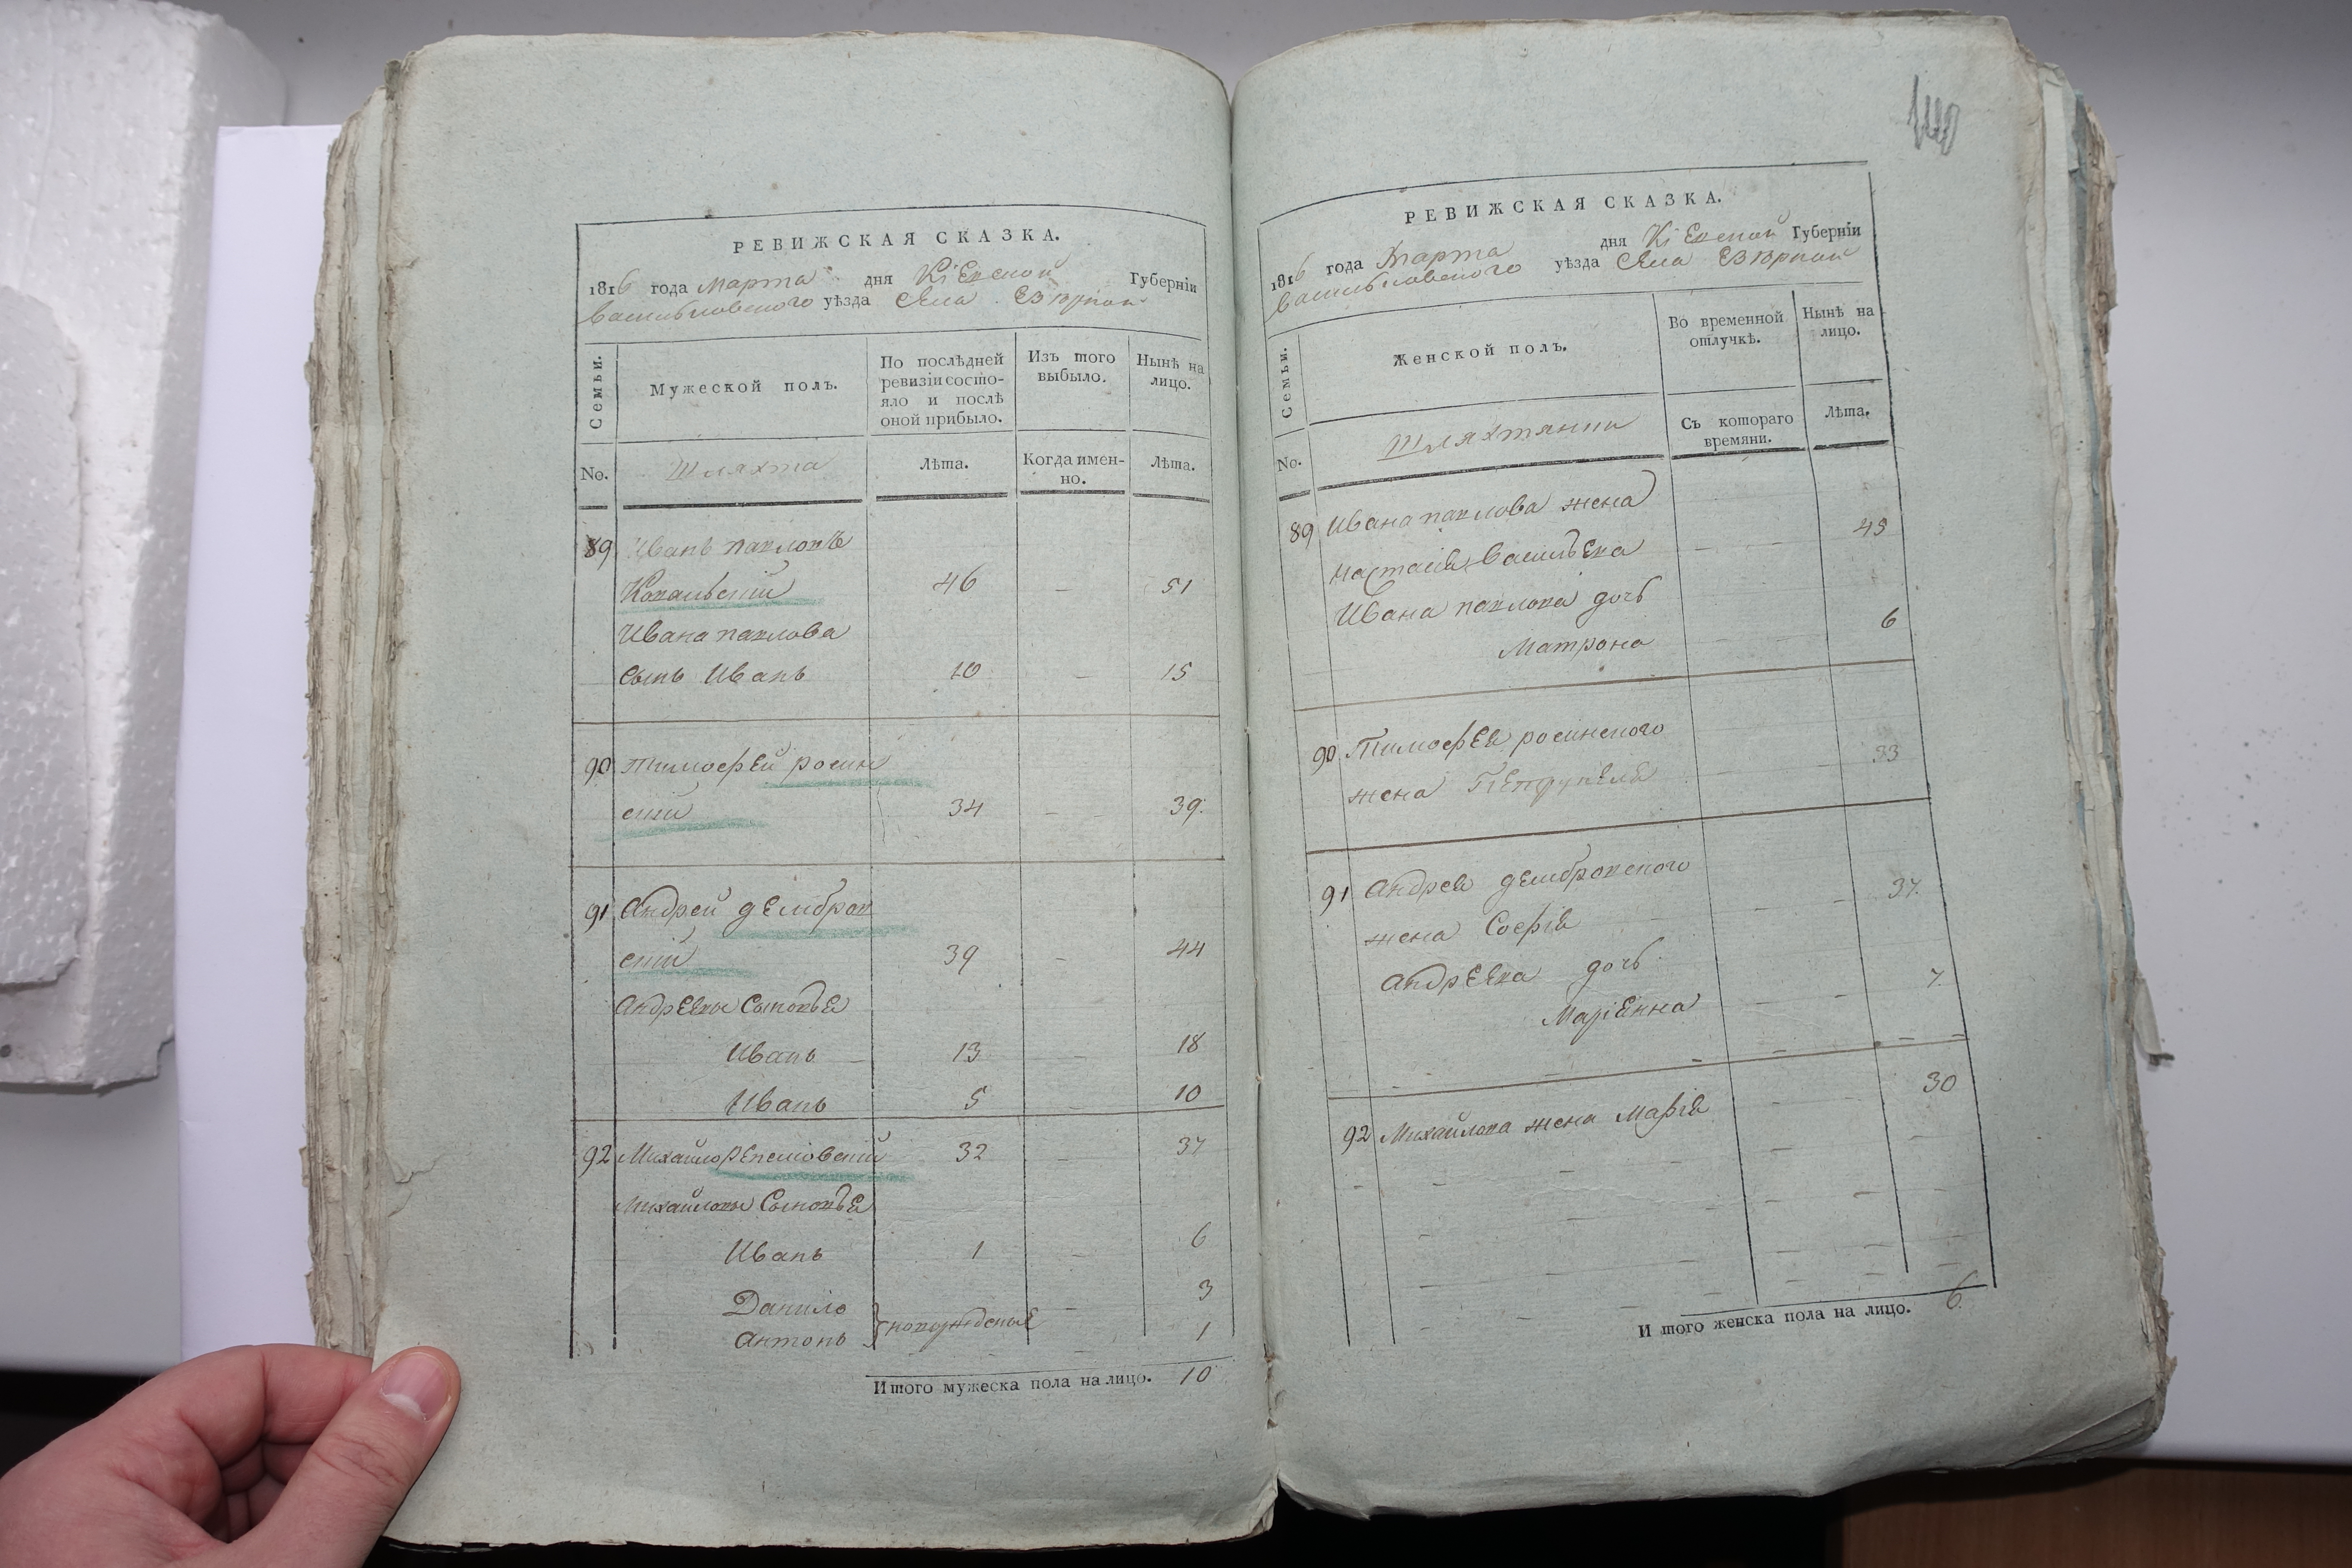 РЕВИЖСКАЯ СКАЗКА.
1816 года марта дня Кіевской Губерніи
Васильковского уѣзда Села Езерной
Семьи.
Мужеской полъ.
По послѣдней ревизіи состо-
яло и послѣ
оной прибыло.
Изъ того
выбыло.
Нынѣ на
лицо.
No.
Шляхта
Лѣта.
Когда имен-
но.
Лѣта.
89 Иванъ павловъ
Ковальскій 46 — 51
Ивана павлова
Сынъ Иванъ 10 — 15
90 тимофей росин
скій 34 — — 39.
91 Андрей дембров
скій 39 — 44
Андреевы Сыновья
Иванъ — 13 — 18
Иванъ 5 — 10
92 Михайло 32 — 37
Михайловы Сыновья
Иванъ 1 — 6
Данило — 3
Антонъ новорожденые 1
Итого мужеска пола на лицо. 10
РЕВИЖСКАЯ СКАЗКА.
1816 года Марта дня Кіевской Губерніи
Васильковского уѣзда Села Езерной
Семьи.
Женской полъ.
Во временной
отлучкѣ.
Нынѣ на
лицо.
No.
Шляхтянки
Съ котораго
времяни.
Лѣта.
89 Ивана павлова жена
настасия Васильева — — 45
Ивана павлова дочь
Матрона — — 6
90 Тимофея росинского
жена — — 33
91 Андрея дембровского
жена Софія — — 37.
Андреева дочь
Маріенна — — 7.
92 Михайлова жена Марія — — 30
И того женска пола на лицо. 6.